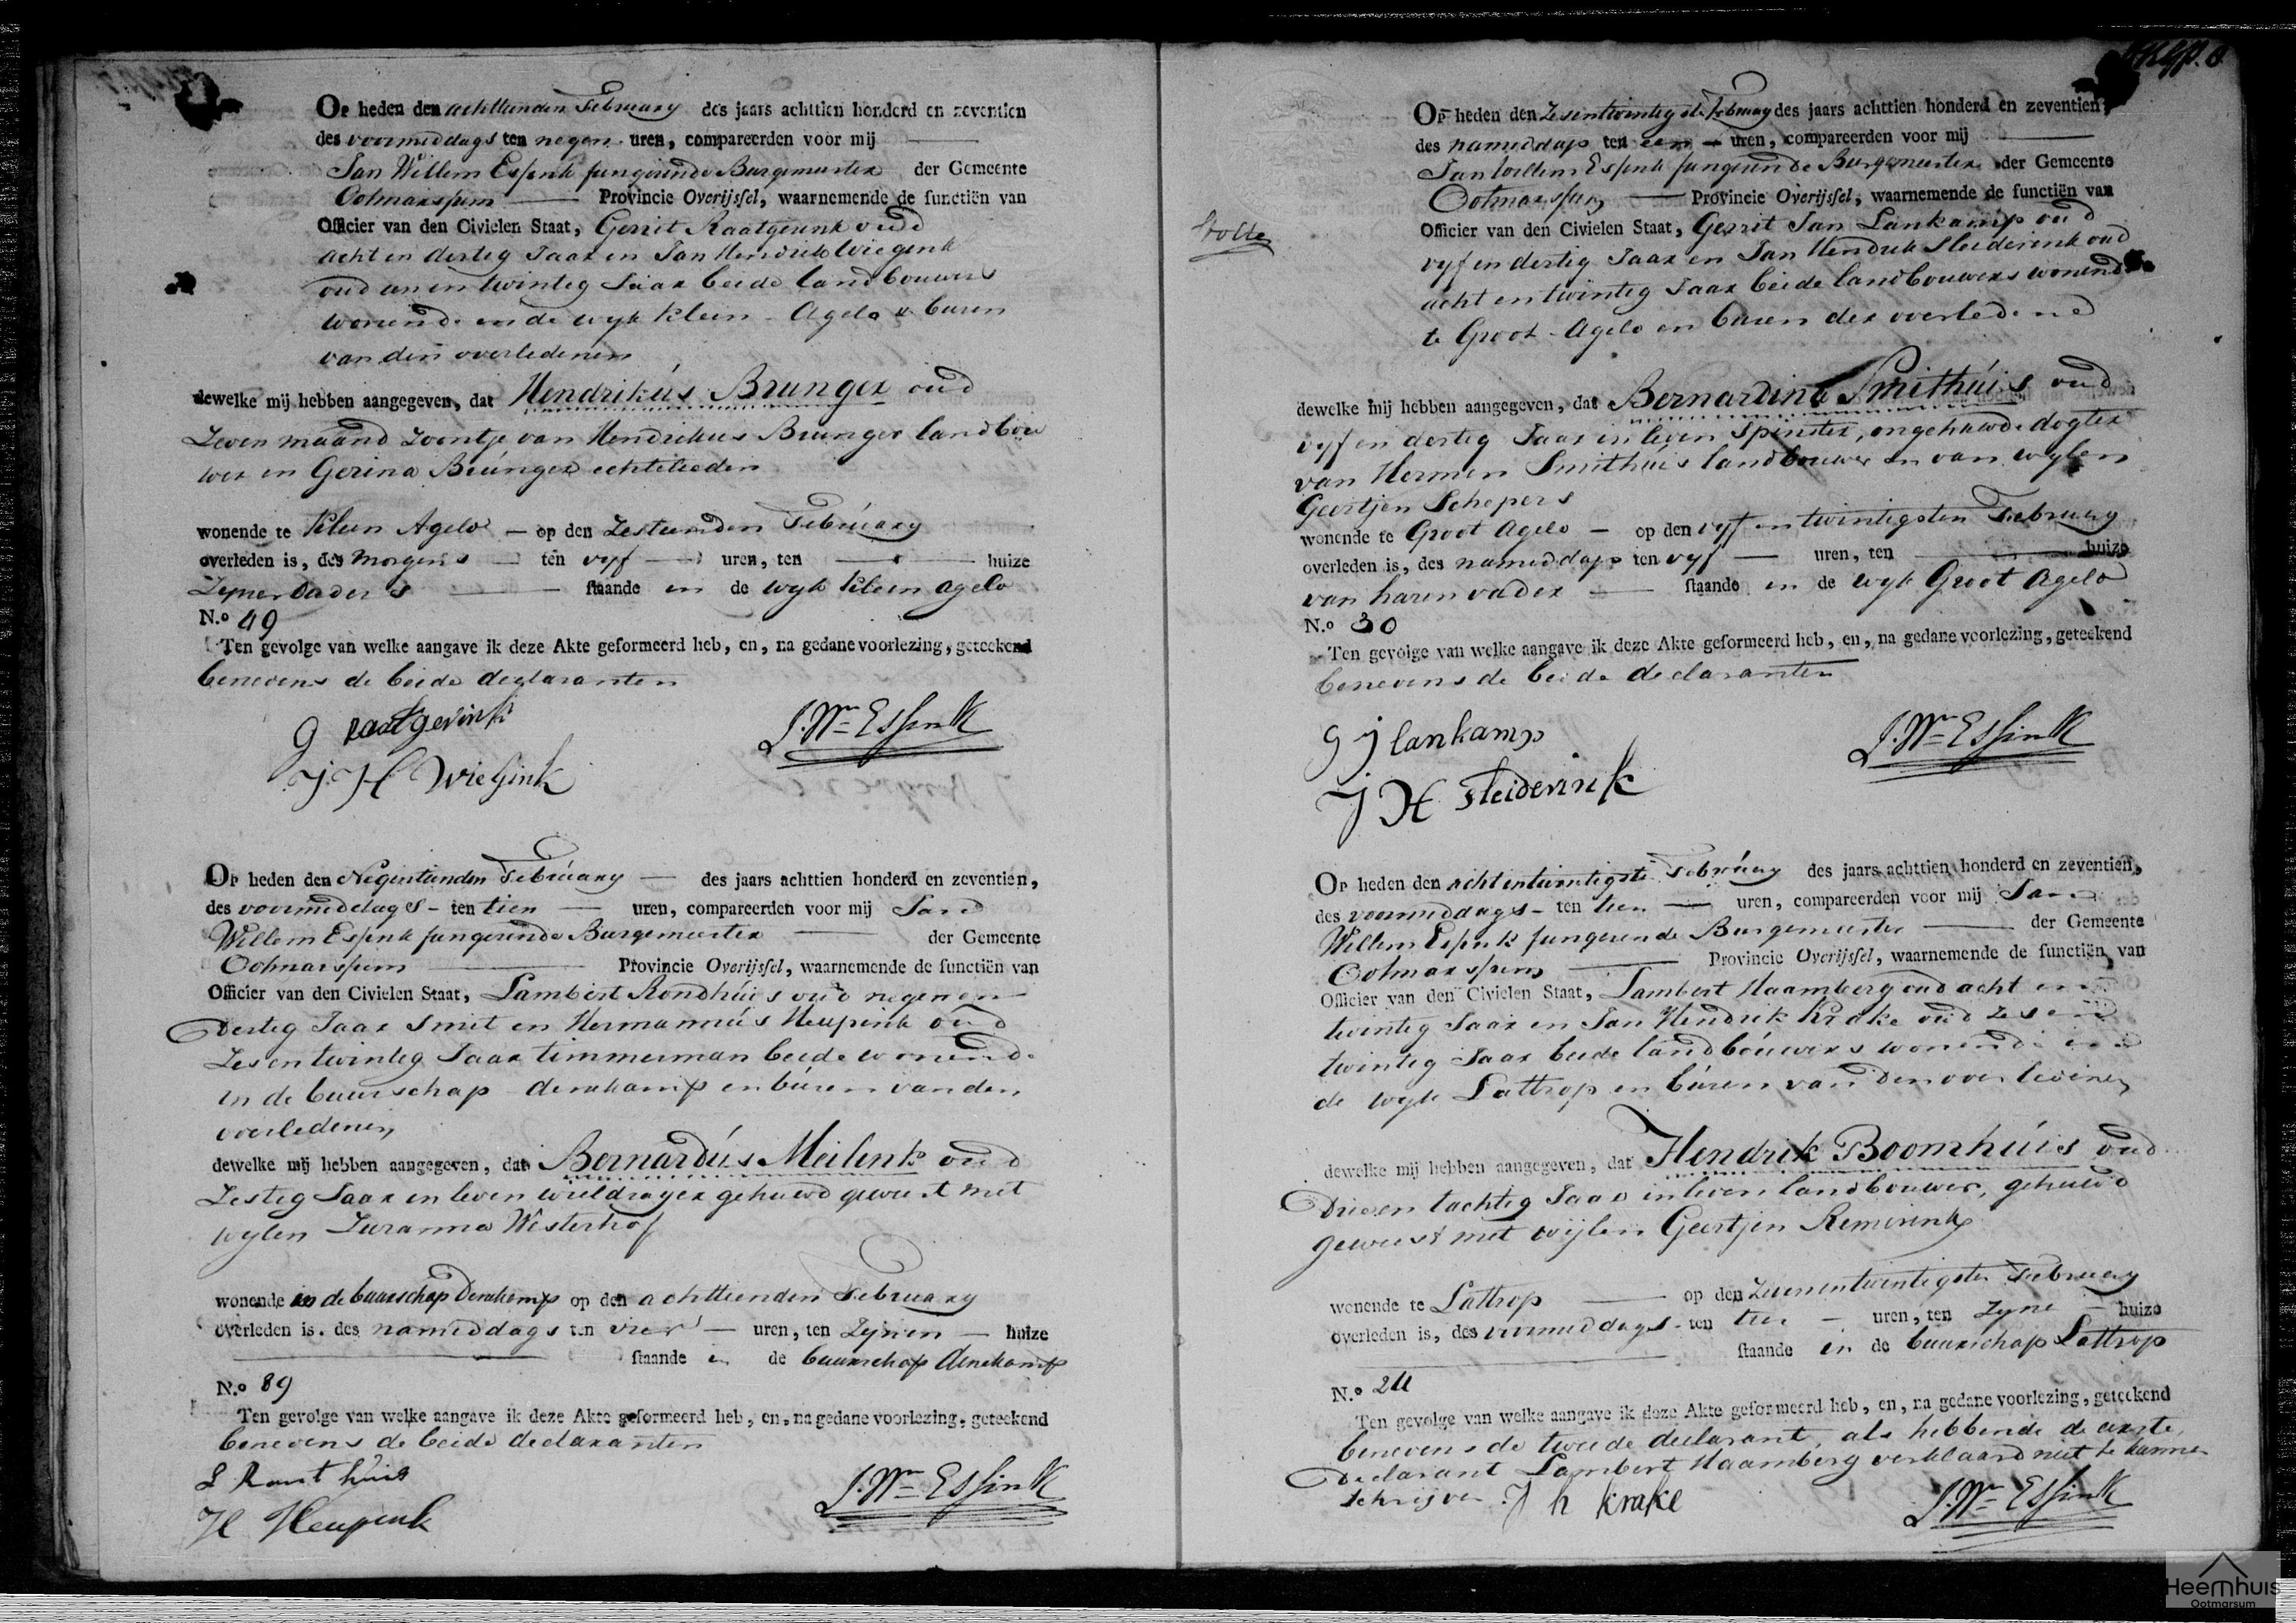 Op heden den achttienden February des jaars achttien honderd en zeventien
des voormiddags ten negen uren, compareerden voor mij
Jan Willem Essink fungerende Burgemeester der Gemeente
Ootmarssum Provincie Overijssel, waarnemende de functiën van
Officier van den Civielen Staat, Gerrit Raatgerink oud
acht en dertig Jaar en Jan Hendrik Wiegink
oud een en twintig Jaar beide landbouwers
wonende in de wyk Kleen Agelo & buren
van den overledenen
dewelke mij hebben aangegeven, dat Hendrikús Brunger oud
Zeven maand Zoontje van Hendrikus Brunger landbou
wer en Gerina Brúnger echtelieden
wonende te Kleen Agelo op den Zestienden Februáry
overleden is, des morgens ten vyf uren, ten huize
Zyner Vader's staande in de wyk Kleen Agelo
N.o 49
Ten gevolge van welke aangave ik deze Akte geformeerd heb, en, na gedane voorlezing, geteekend
benevens de beide declaranten
G Raatgerink
J. W.m Essink
J. H Wiegink
Op heden den Negentienden Februáry des jaars achttien honderd en zeventien,
des voormiddags ten tien uren, compareerden voor mij Jan
Willem Essink fungerende Burgemeester der Gemeente
Ootmarssum Provincie Overijssel, waarnemende de functiën van
Officier van den Civielen Staat, Lambert Rondhúis oud negen en
Dertig Jaar Smit en Hermannús Heupink oud
Zes en twintig Jaar timmerman beide wonende
in de buurschap denekamp en búren van den
overledenen
dewelke mij hebben aangegeven, dat Bernardús Meilenk oud
Zestig Jaar in leven wieldrayer gehuwd geweest met
wylen Zuranna Westerhof
wonende in de buurschap Denekamp op den achttienden February
overleden is, des namiddags ten vier uren, ten Zynen huize
staande in de buurschap denekamp
N.o 89
Ten gevolge van welke aangave ik deze Akte geformeerd heb, en, na gedane voorlezing, geteekend
benevens de beide declaranten
L Ront huis
J. W.m Essink
H Heupink
Op heden den Zesentwintigste February des jaars achttien honderd en zeventien,
des namiddags ten een uren, compareerden voor mij
Jan Willem Essink fungerende Burgemeester der Gemeente
Ootmarssum Provincie Overijssel, waarnemende de functiën van
Stolte
Officier van den Civielen Staat, Gerrit Jan Lankamp oud
vyf en dertig Jaar en Jan Hendrik Sleiderink oud
acht en twintig Jaar beide landbouwers wonende
te Groot Agelo en buren der overledene
dewelke mij hebben aangegeven, dat Bernardina Smithúis oud
vyf en dertig Jaar in leven Spinster, ongehuwde dogter
van Hermen Smithúis landbouwer en van wylen
Geertjen Schepers
wonende te Groot Agelo op den vyf en twintigsten February
overleden is, des namiddags ten vyf uren, ten huize
van haren vader staande in de wyk Groot Agelo
N.o 30
Ten gevolge van welke aangave ik deze Akte geformeerd heb, en, na gedane voorlezing, geteekend
benevens de beide declaranten
G J lankamp
J. W.m Essink
J H Sleiderink
Op heden den achtentwintigste Febrúary des jaars achttien honderd en zeventien,
des voormiddags ten tien uren, compareerden voor mij Jan
Willem Essink fungerende Burgemeester der Gemeente
Ootmarssum Provincie Overijssel, waarnemende de functiën van
Officier van den Civielen Staat, Lambert Haamberg oud acht en
twintig Jaar en Jan Hendrik Krake oud Zes en
twintig Jaar beide landbóuwers wonende in
de wyk Lattrop en búren van den overledenen
dewelke mij hebben aangegeven, dat Hendrik Boomhúis oud
Drie en tachtig Jaar in leven landbouwer, gehuwd
geweest met wijlen Geertjen Remerink
wonende te Lattrop op den Zevenentwintigsten February
overleden is, des voormiddags ten tien uren, ten Zyne huize
staande in de buurschap Lattrop
N.o 24
Ten gevolge van welke aangave ik deze Akte geformeerd heb, en, na gedane voorlezing, geteekend
benevens de tweede declarant, als hebbende de eerste
Declarant Lambert Haamberg verklaard niet te kunnen
schrijven J h krake
J. W.m Essink
Heemhuis
Ootmarsum